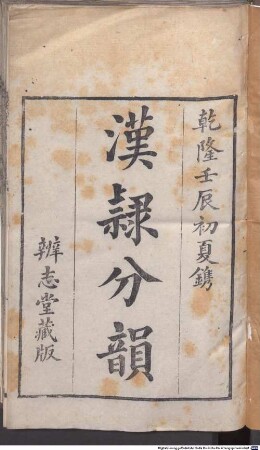 乾隆壬辰初夏鐫
漢隸分韻
辨志堂藏版